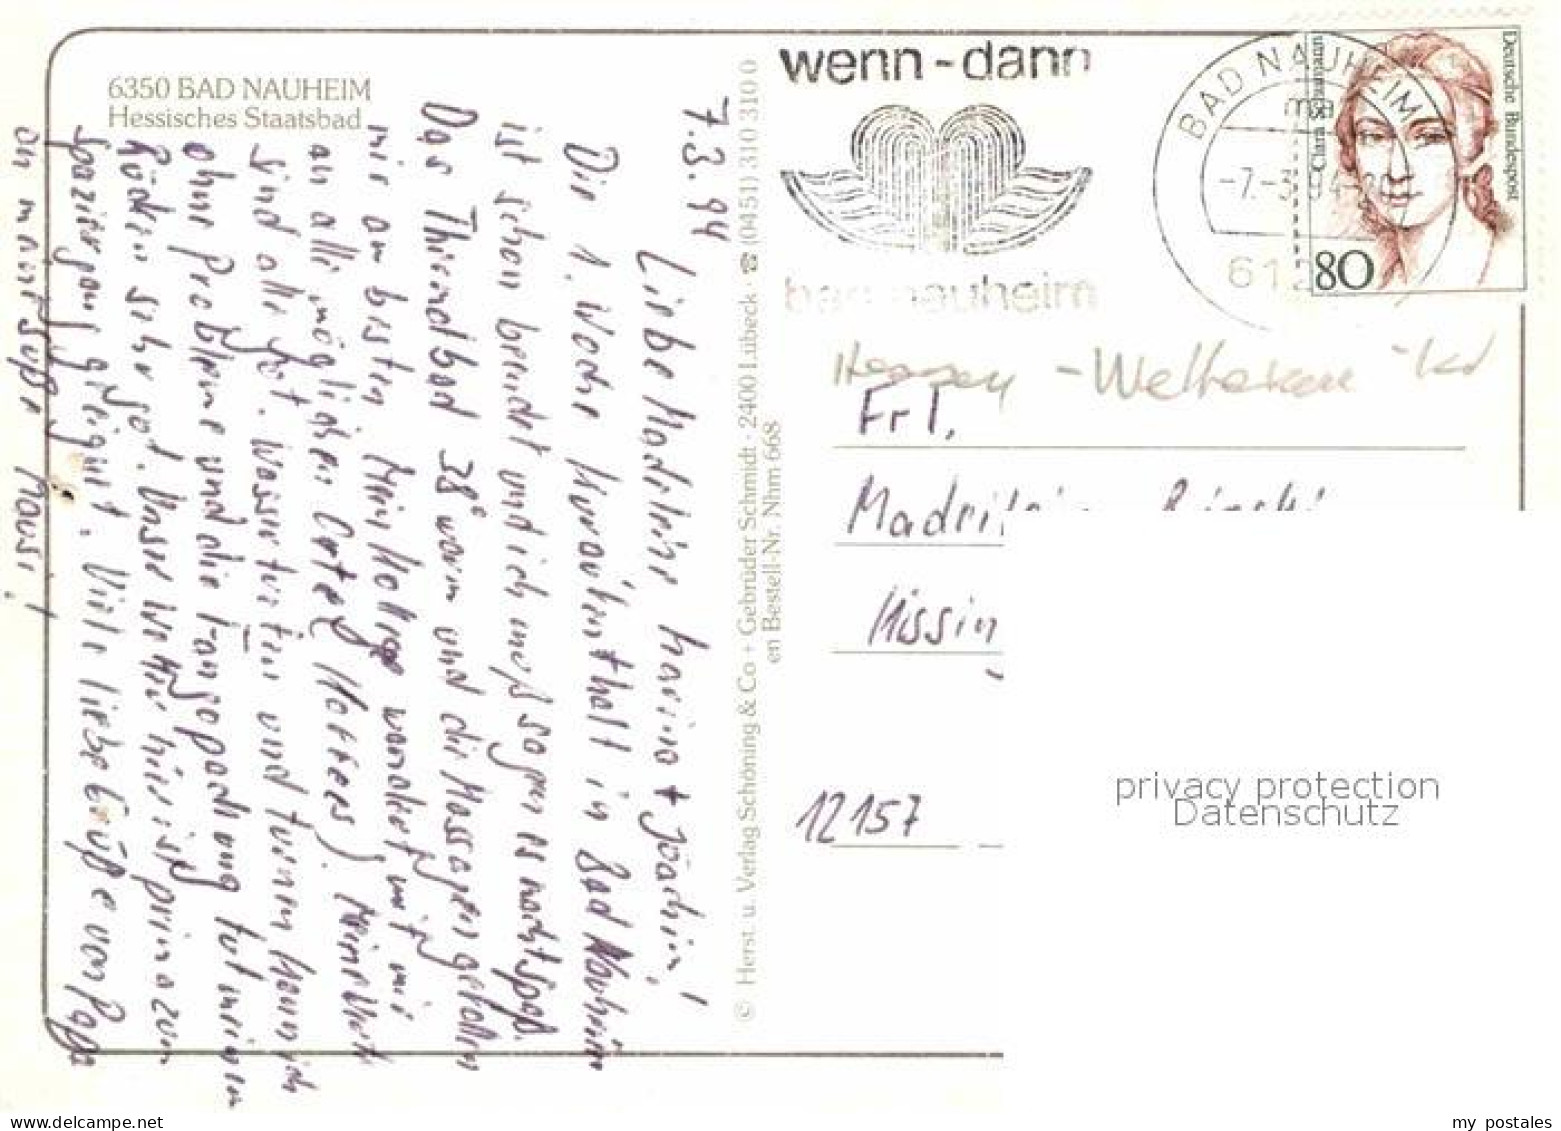 6350 BAD NAUHEIM
Hessisches Staatsbad
7.3.94
Liebe Madeleine, Karina + Joachim!
Die 1. Woche Kuraufenthalt in Bad Nauheim
ist schon beendet und ich muß sagen es macht Spaß.
Das Thermalbad 38° warm und die Massagen gefallen
mir am besten. Mein Kollege wandert mit mir
an alle möglichen Orte
sind alle gut. Wassertreten und turnen kann ich
ohne Probleme und die Fangopackung tut meinem
Rücken sehr gut. Unser Wetter hier ist prima zum
Spazierengang geeignet. Viele liebe Grüße von Papa
an meine süße Mausi!
© Herst. u. Verlag Schöning & Co + Gebrüder Schmidt · 2400 Lübeck · ☎ (0451) 310 310 0
en Bestell-Nr. Nhm 668
wenn-dann
bad nauheim
BAD NAUHEIM
ma
-7.-3.94-
612
Clara Schumann
Deutsche Bundespost
80
Hessen -
Frl.
Missin
12157
privacy protection
Datenschutz
my postales